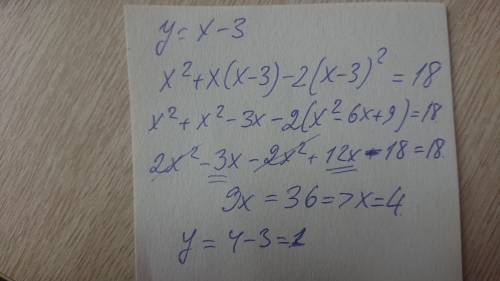 y = x - 3
x² + x(x-3) - 2(x-3)² = 18
x² + x² - 3x - 2(x² - 6x + 9) = 18
2x² - 3x - 2x² + 12x - 18 = 18
9x = 36 => x = 4
y = 4 - 3 = 1